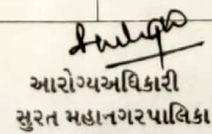 આરોગ્યઅધિકારી
સુરત મહાનગરપાલિકા